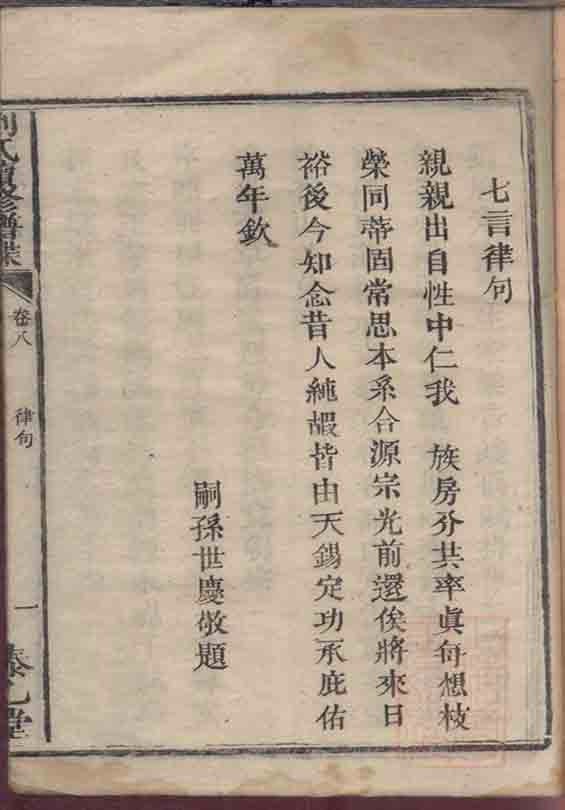 七言律句
親親出自性中仁我 族房分共率眞每想枝
榮同蒂固常思本系合源宗光前還俟將來日
裕後今知念昔人純嘏皆由天錫定功承庇佑
萬年欽
嗣孫世慶敬題
氏續修譜牒
卷八
律句
一
堂